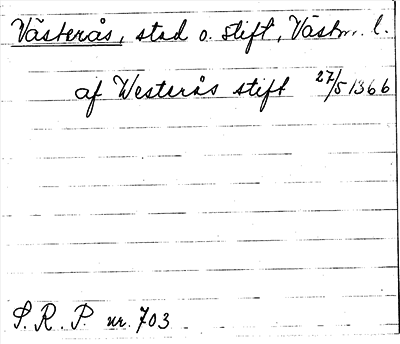 Västerås, stad o. stift, Västm. l.
af Westerås stift 27/5 1366
S. R. P. nr. 703